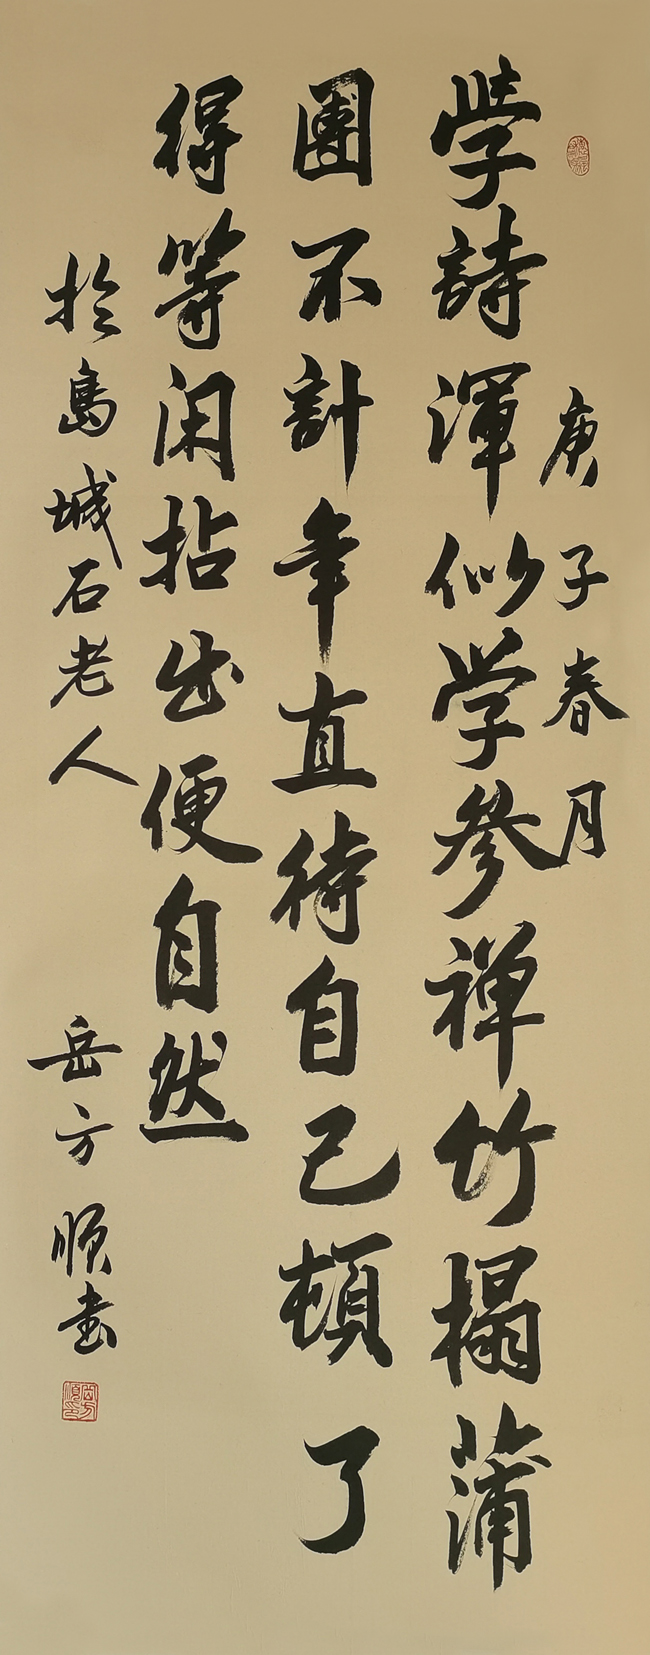 庚子春月
學詩渾似学參禅竹榻蒲
團不計年直待自己頓了
得等闲拈出便自然
於島城石老人
岳方順書
岳方順印